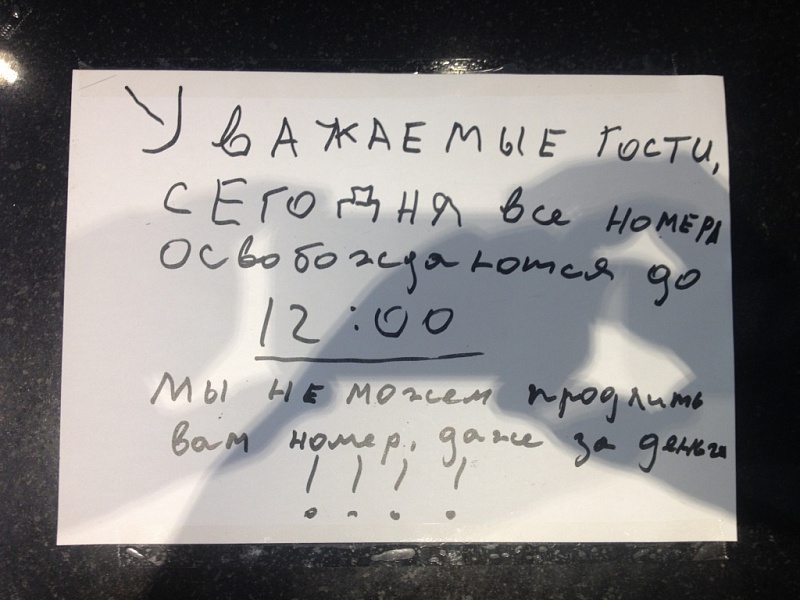 УВАЖАЕМЫЕ ГОСТИ,
СЕГОДНЯ все НОМЕРА
освобождаются до
12:00
МЫ НЕ можем продлить
вам номер, даже за деньги
!!!!